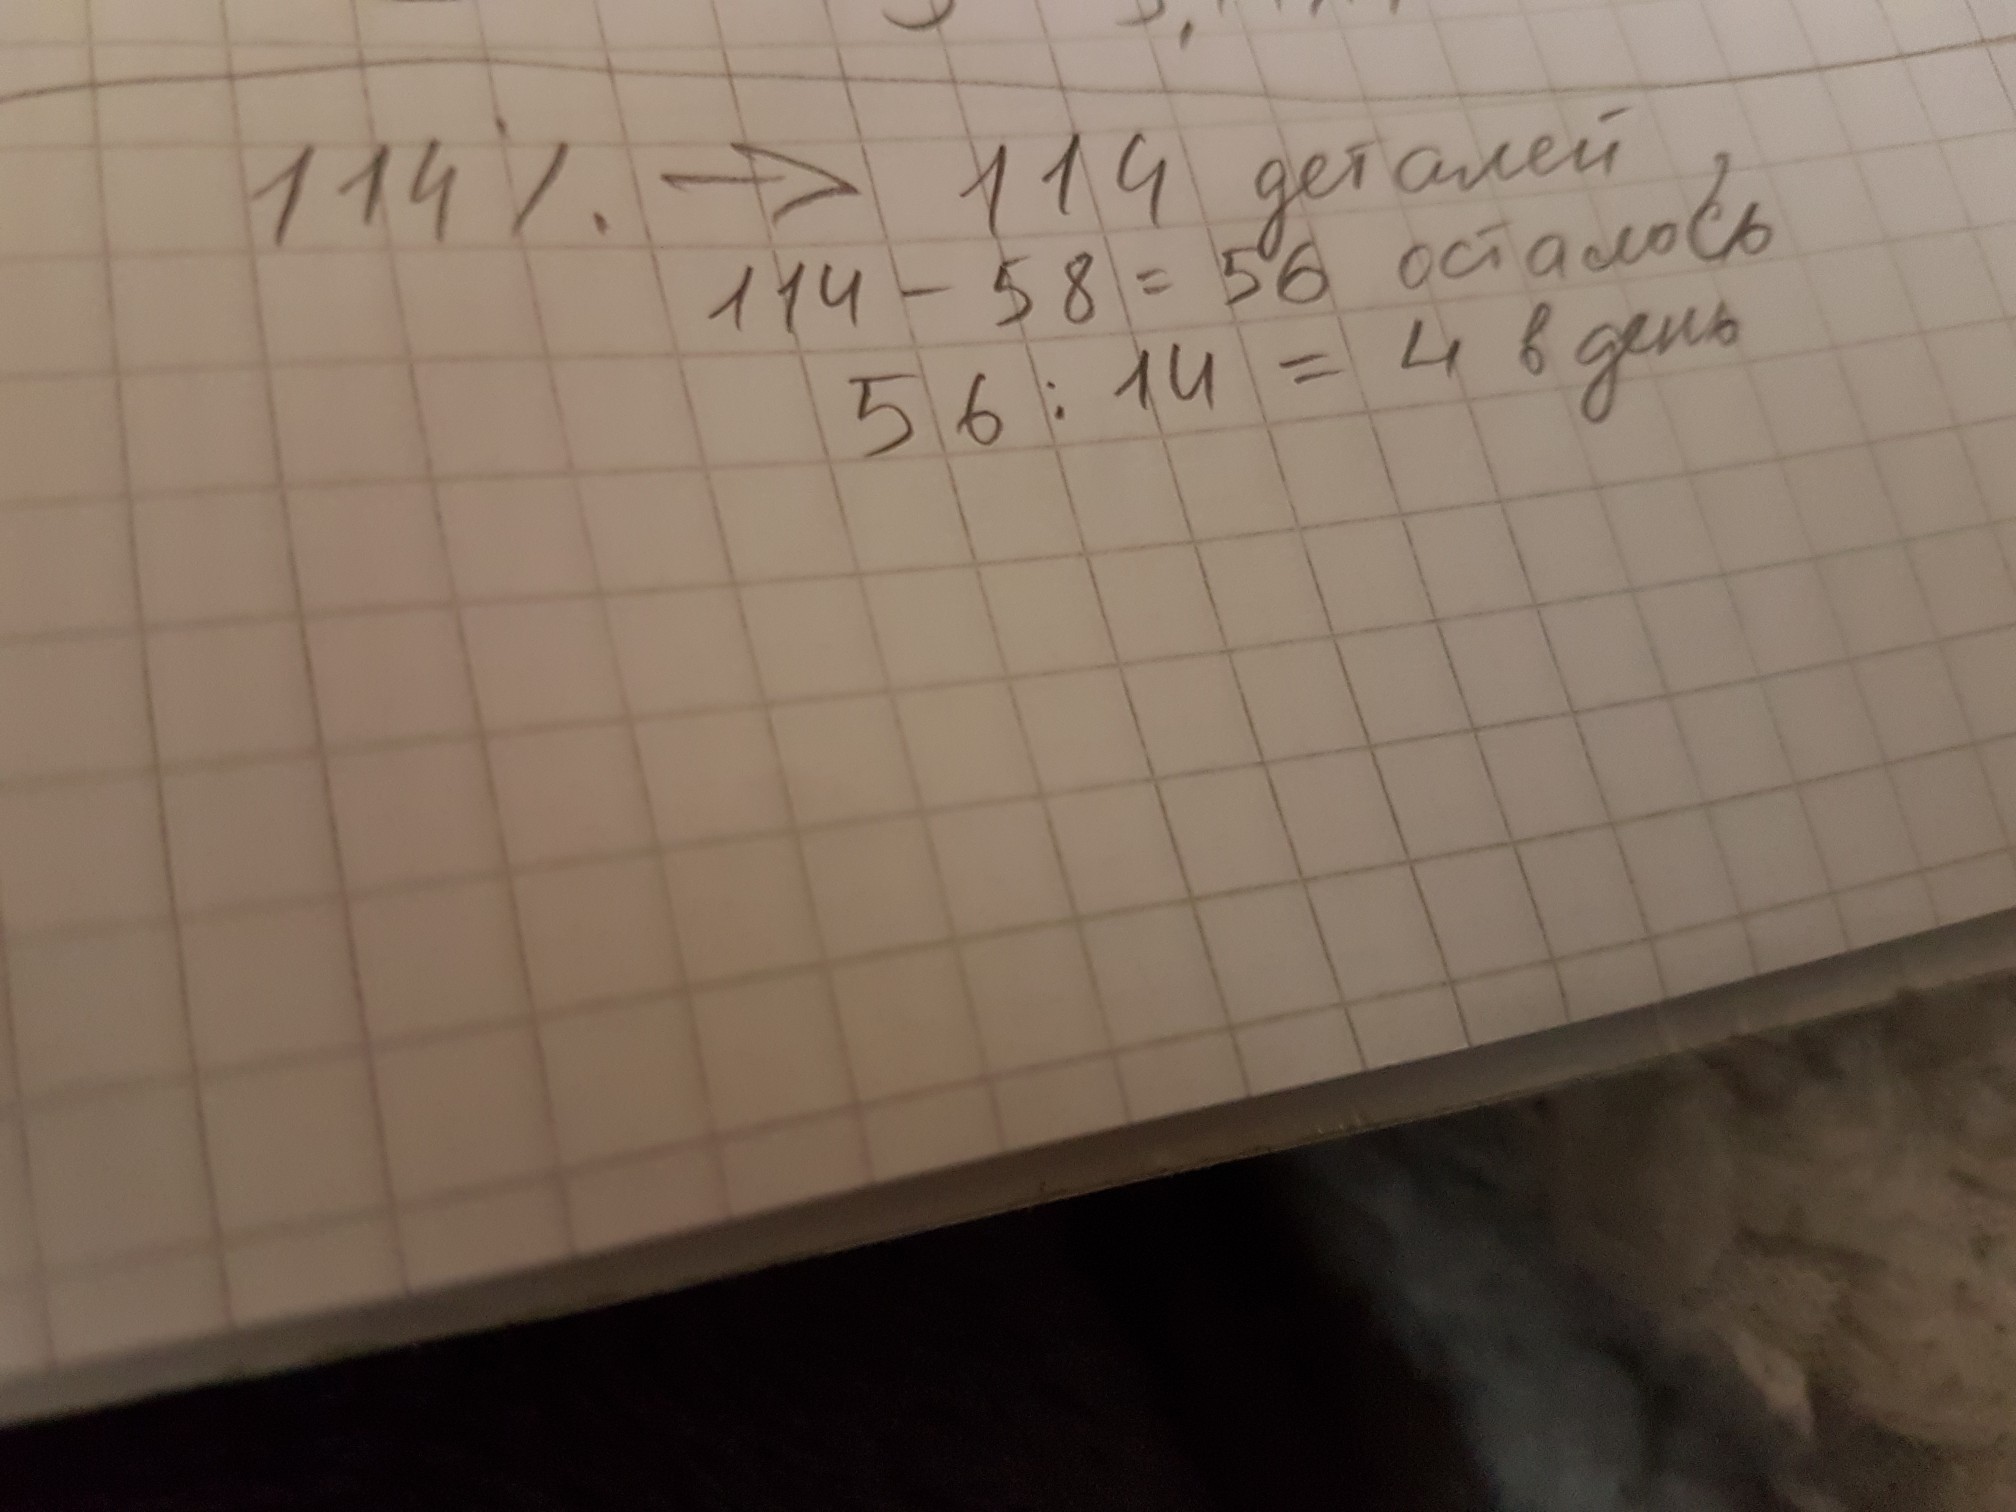 114%. → 114 деталей
114 - 58 = 56 осталось
56 : 14 = 4 в день